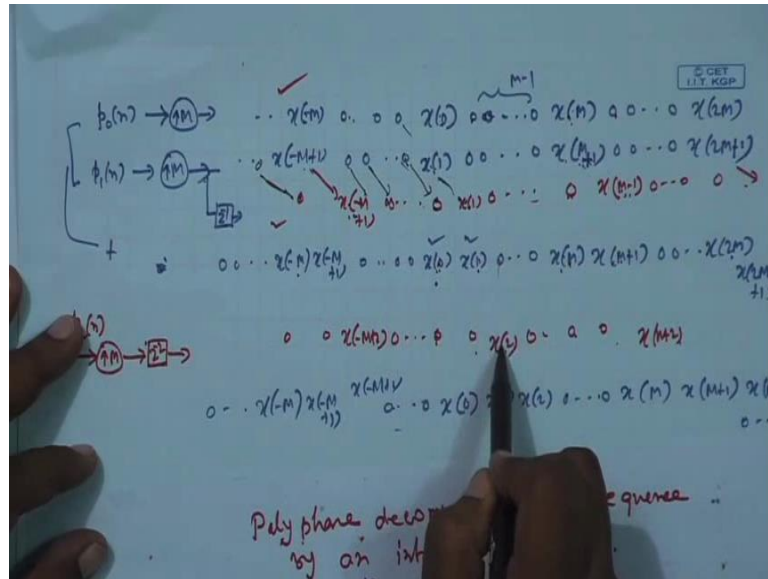 © CET
I.I.T. KGP
M-1
p₀(n) → ↑M → .. x(-M) 0.. 0 0 x(0) 0 0 ... 0 x(M) 0 0 .. 0 x(2M)
p₁(n) → ↑M → .. 0 x(-M+1) 0 0 .. 0 x(1) 0 0 .. 0 x(M+1) 0 0 .. 0 x(2M+1)
z⁻¹ → 0 x(-M+1) 0 .. 0 x(1) 0 ... 0 x(M-1) 0 .. 0
+ 0 0 .. x(-M) x(-M+1) 0 .. 0 0 x(0) x(1) 0 .. 0 x(M) x(M+1) 0 0 .. x(2M) x(2M+1)
(n) → ↑M → z⁻² → 0 0 x(-M+2) 0 ... 0 0 x(2) 0 .. 0 0 x(M+2)
0 .. x(-M) x(-M+1) 0 .. 0 x(0) x(2) 0 ... 0 x(M) x(M+1)
0 ..
Polyphase
by an